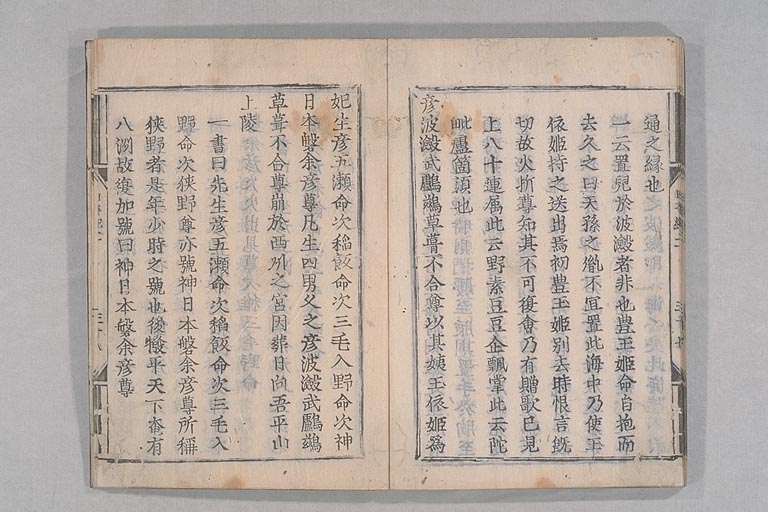 通之縁也
一云置兒於波瀲者非也豊玉姬命自抱而
去久之曰天孫之胤不宜置此海中乃使玉
依姬持之送出焉初豊玉姬別去時恨言旣
切故火折尊知其不可復會乃有贈歌已見
上八十連属此云野素豆豆企飄掌此云陀
毗盧箇須也
彦波瀲武鸕鷀草葺不合尊以其姨玉依姬爲
妃生彦五瀨命次稲飯命次三毛入野命次神
日本磐余彦尊凡生四男久之彦波瀲武鸕鷀
草葺不合尊崩於西州之宮因葬日向吾平山
上陵
一書曰先生彦五瀨命次稲飯命次三毛入
野命次狹野尊亦號神日本磐余彦尊所稱
狹野者是年少時之號也後撥平天下奄有
八洲故復加號曰神日本磐余彦尊